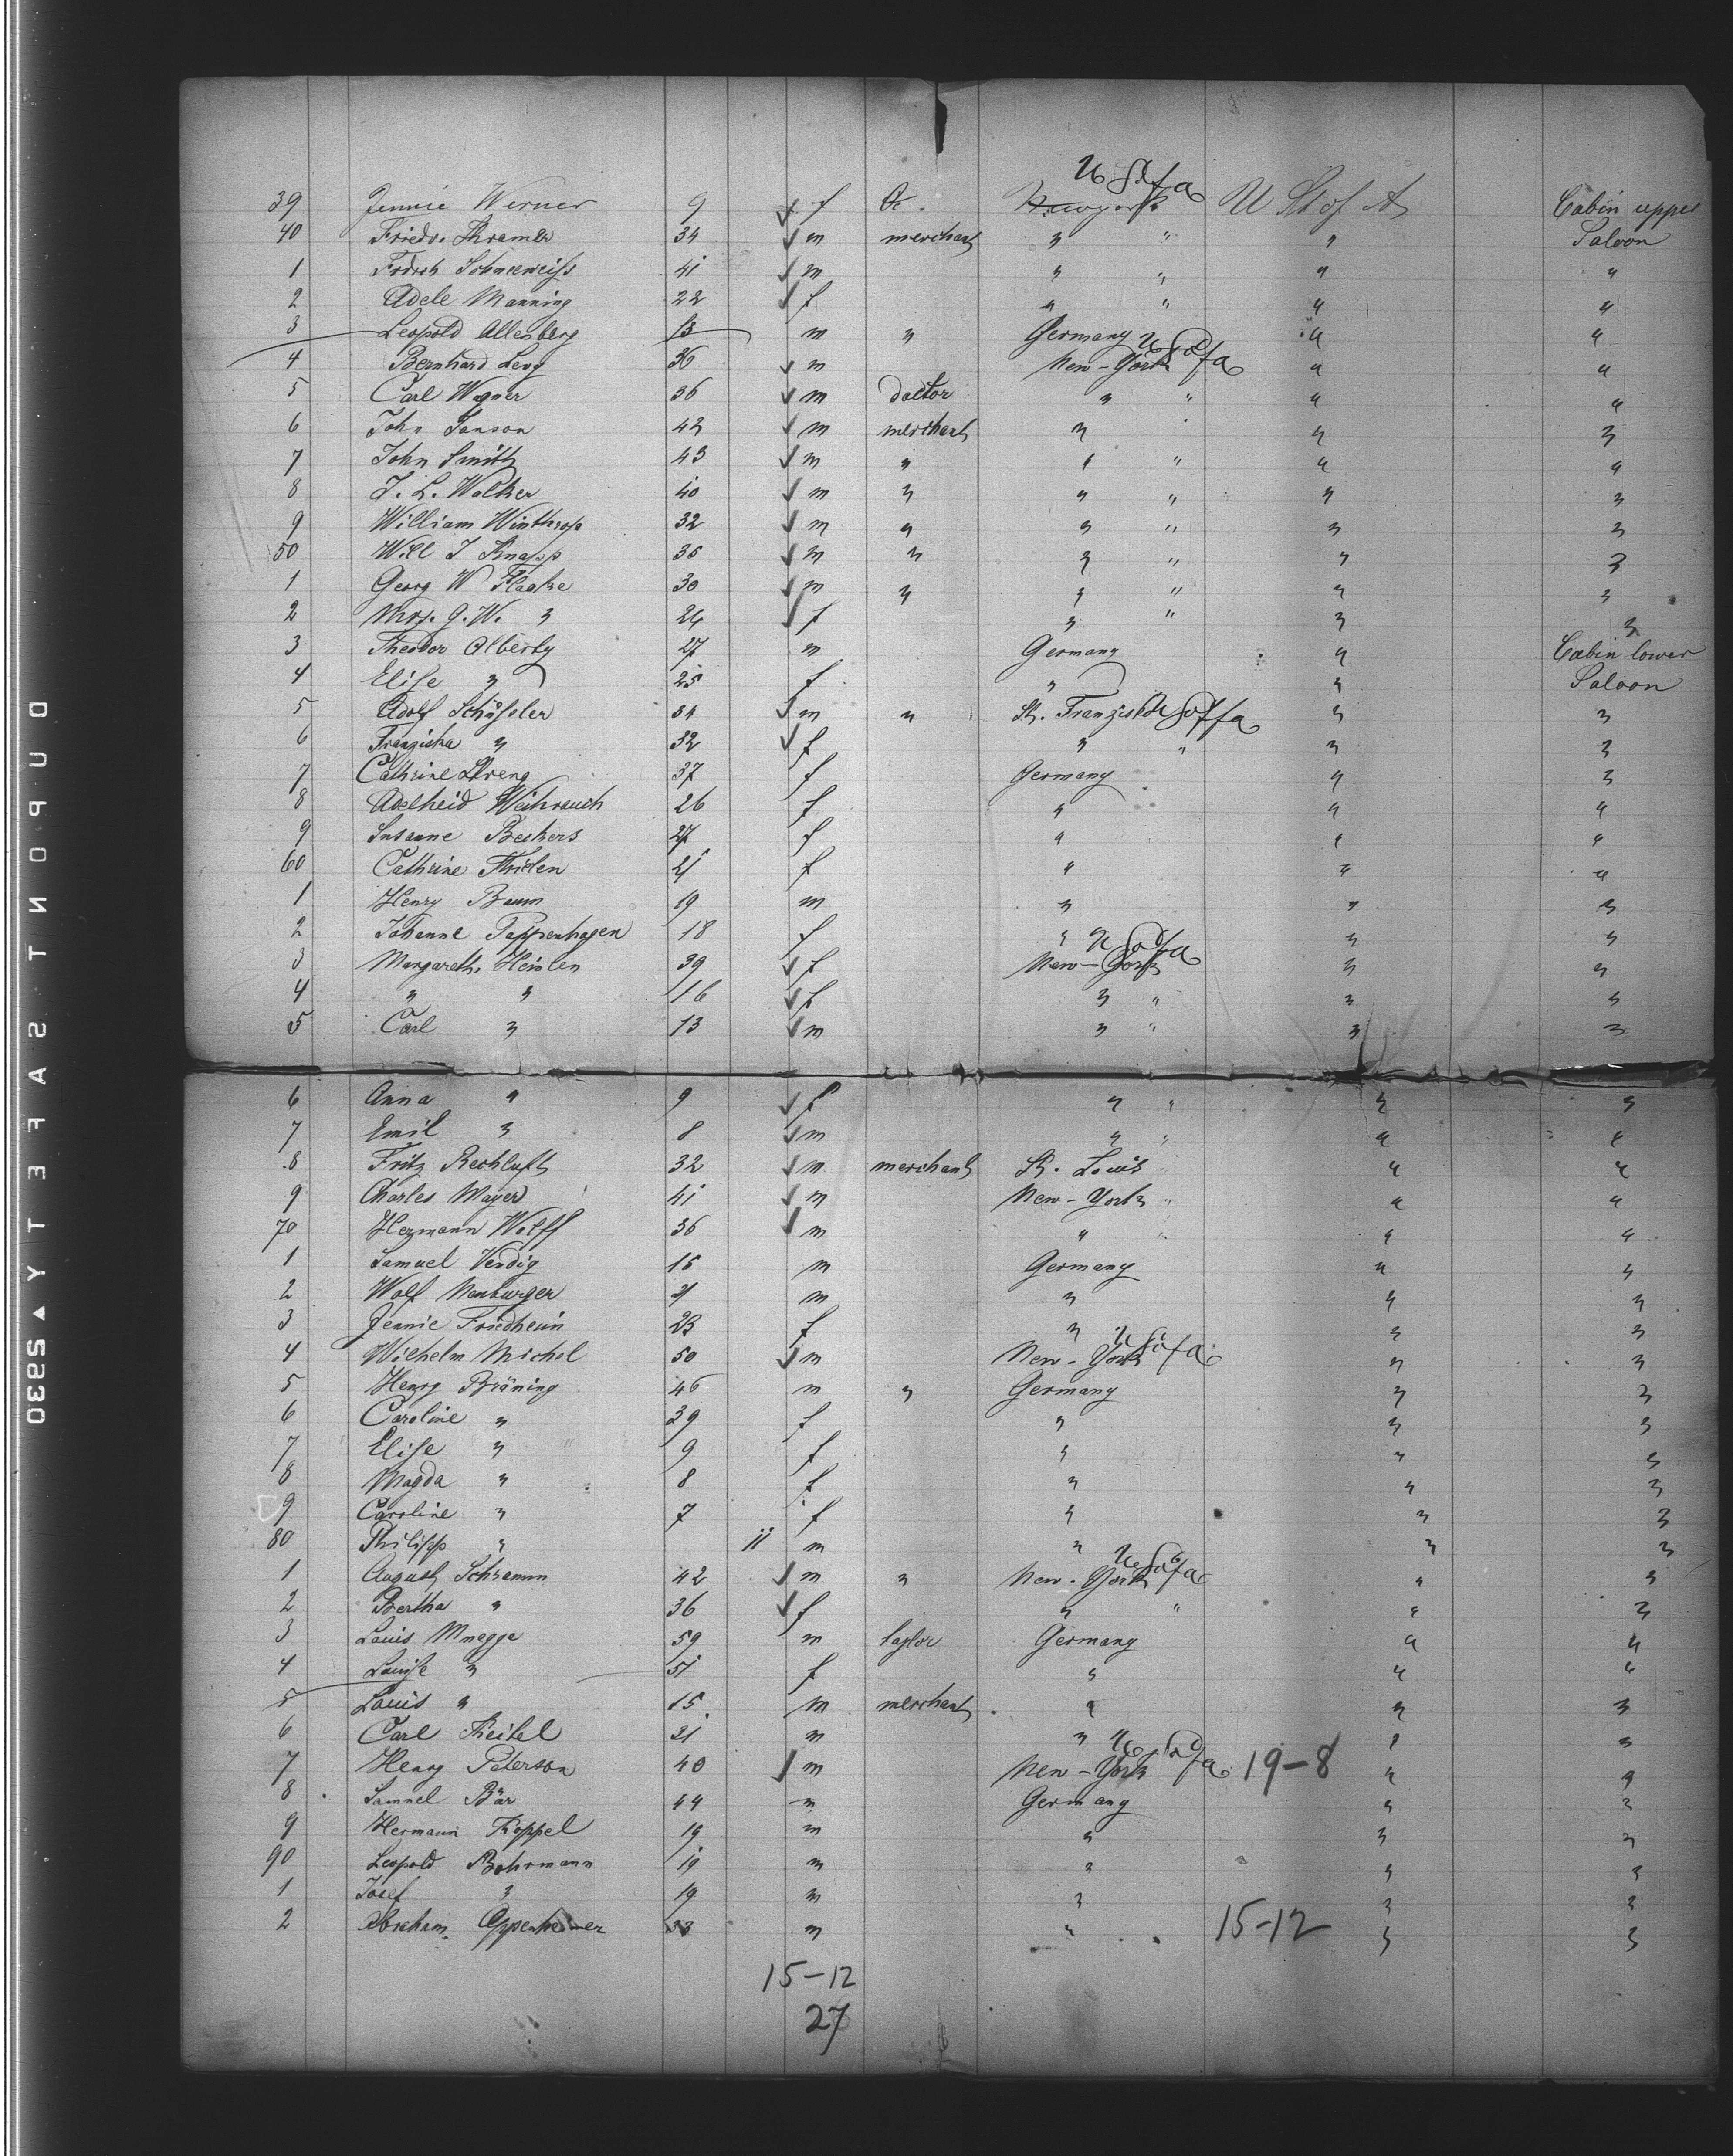 U St of A
39 Jennie Werner 9 f Newyork U St of A Cabin upper
40 Friedr. Kramer 34 m merchant " " " Saloon
1 Schneeweiss 41 m " " " "
2 Adele Manning 22 f " " " "
3 Leopold Allenberg 13 m " Germany " "
U S of A
4 Bernhard Levy 36 m New-York " "
5 Carl Wagner 36 m doctor " " " "
6 John Sanson 42 m merchant " " " "
7 John Smith 43 m " " " " "
8 J. L. Walker 40 m " " " " "
9 William Winthrop 32 m " " " " "
50 Will J Knapp 35 m " " " " "
1 Georg W Flaake 30 m " " " " "
2 Mrs. G. W. " 24 f " " " "
3 Theodor Olberty 27 m Germany " Cabin lower
4 Elise " 25 f " " Saloon
5 Adolf Schüssler 34 m " St. Franzisko U S of A " "
6 Franziska " 32 f " " " "
7 Cathrine 37 f Germany " "
8 Adelheid Weihrauch 26 f " " "
9 Susanne Beckers 27 f " " "
60 Cathrine Thielen 21 f " " "
1 Henry Baum 19 m " " "
2 Johanne Pappenhagen 18 f " " "
U S of A
3 Margareth. Heinlen 39 f New-York " "
4 " " 16 f " " " "
5 Carl " 13 m " " " "
6 Anna " 9 f " " " "
7 Emil " 8 m " " " "
8 Fritz Rechluft 32 m merchant St. Louis " " "
9 Charles Mayer 41 m New-York " " "
70 Hermann Wolff 36 m " " " "
1 Samuel Verdig 15 m Germany " "
2 Wolf Neuburger 21 m " " "
3 Jennie Friedheim 23 f " " "
U S of A
4 Wilhelm Michel 50 m New-York " "
5 Henry Bräning 46 m " Germany " "
6 Caroline " 39 f " " "
7 Elise " 9 f " " "
8 Magda " 8 f " " "
9 Caroline " 7 f " " "
80 Philipp " 11 m " " "
U S of A
1 August Schramm 42 m " New-York " "
2 Bertha " 36 f " " " "
3 Louis Mnegge 59 m taylor Germany " "
4 Louise " 51 f " " "
5 Louis " 15 m merchant " " "
6 Carl Keitel 21 m " " "
U S of A
7 Henry Peterson 40 m New-York 19-8 " "
8 Samuel Bär 44 m Germany " "
9 Hermann Koppel 19 m " " "
90 Leopold Bohrmann 19 m " " "
1 Josef " 19 m " " "
2 Abraham Oppenheimer 33 m " 15-12 " "
15-12
27
DUPONT SAFETY ▲ 25930